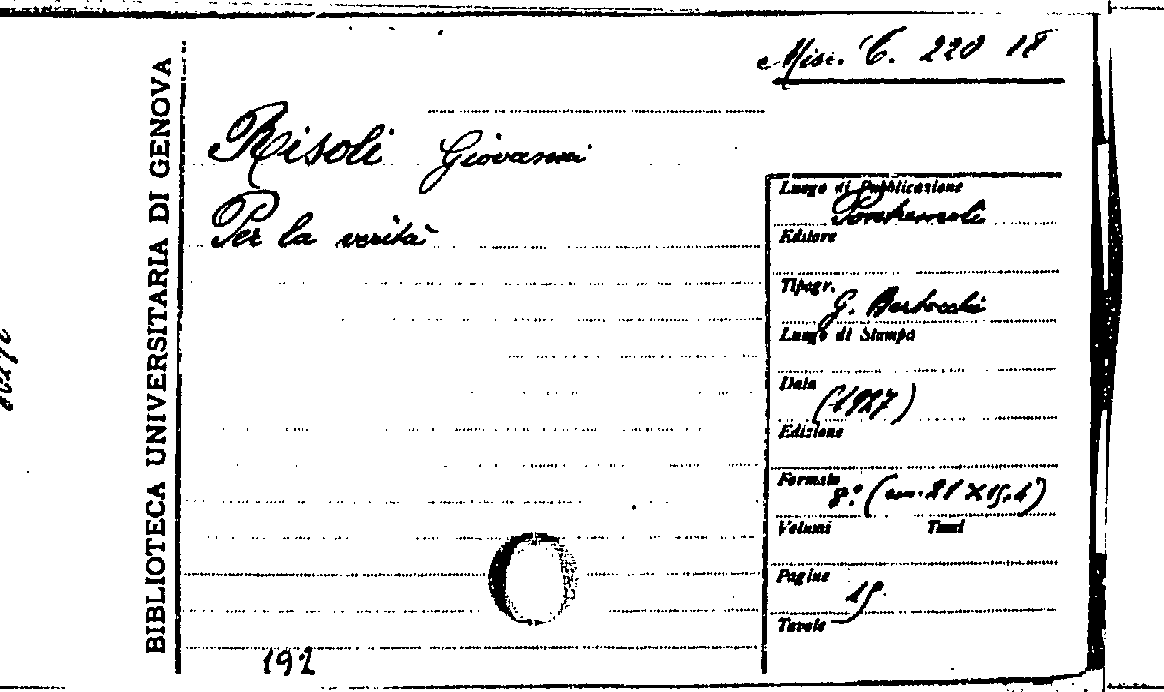 Misc. C. 220 18
BIBLIOTECA UNIVERSITARIA DI GENOVA
Risoli Giovanni
Per la verità
Luogo di Pubblicazione
Pontremoli
Editore
Tipogr.
G. Bertocchi
Luogo di Stampa
Data
(1927)
Edizione
Formato
8.° (cm. 21 × 15,1)
Volumi Tomi
Pagine
15
Tavole
192